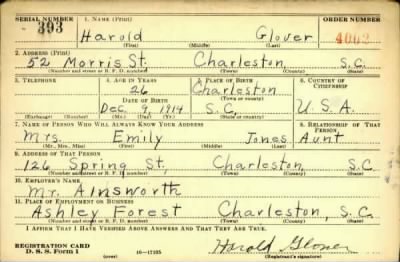 SERIAL NUMBER 1. NAME (Print) ORDER NUMBER
393 Harold Glover 4002
(First) (Middle) (Last)
2. ADDRESS (Print)
52 Morris St. Charleston, S.C.
(Number and street or R. F. D. number) (Town) (County) (State)
3. TELEPHONE 4. AGE IN YEARS 5. PLACE OF BIRTH 6. COUNTRY OF CITIZENSHIP
26 Charleston
DATE OF BIRTH (Town or county)
Dec. 9, 1914 S.C. U.S.A.
(Exchange) (Number) (Mo.) (Day) (Yr.) (State or country)
7. NAME OF PERSON WHO WILL ALWAYS KNOW YOUR ADDRESS 8. RELATIONSHIP OF THAT PERSON
Mrs. Emily Jones Aunt
(Mr., Mrs., Miss) (First) (Middle) (Last)
9. ADDRESS OF THAT PERSON
126 Spring St, Charleston, S.C
(Number and street or R. F. D. number) (Town) (County) (State)
10. EMPLOYER'S NAME
Mr. Ainsworth
11. PLACE OF EMPLOYMENT OR BUSINESS
Ashley Forest Charleston, S.C.
(Number and street or R. F. D. number) (Town) (County) (State)
I AFFIRM THAT I HAVE VERIFIED ABOVE ANSWERS AND THAT THEY ARE TRUE.
REGISTRATION CARD
D. S. S. Form 1 (over) 16—17105 Harold Glover
(Registrant's signature)